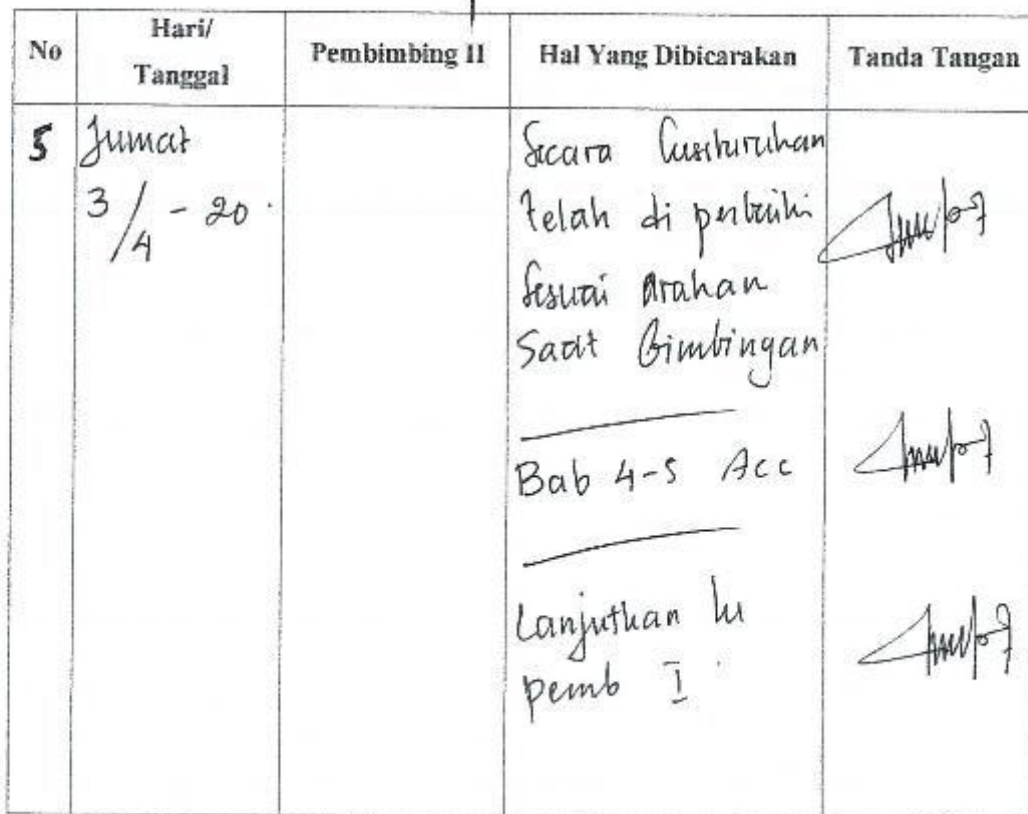 No
Hari/
Tanggal
Pembimbing II
Hal Yang Dibicarakan
Tanda Tangan
5
Jumat
3/4 - 20.
Secara keseluruhan
telah di perbaiki
Sesuai Arahan
Saat Bimbingan
Bab 4-5 Acc
Lanjutkan ke
pemb I